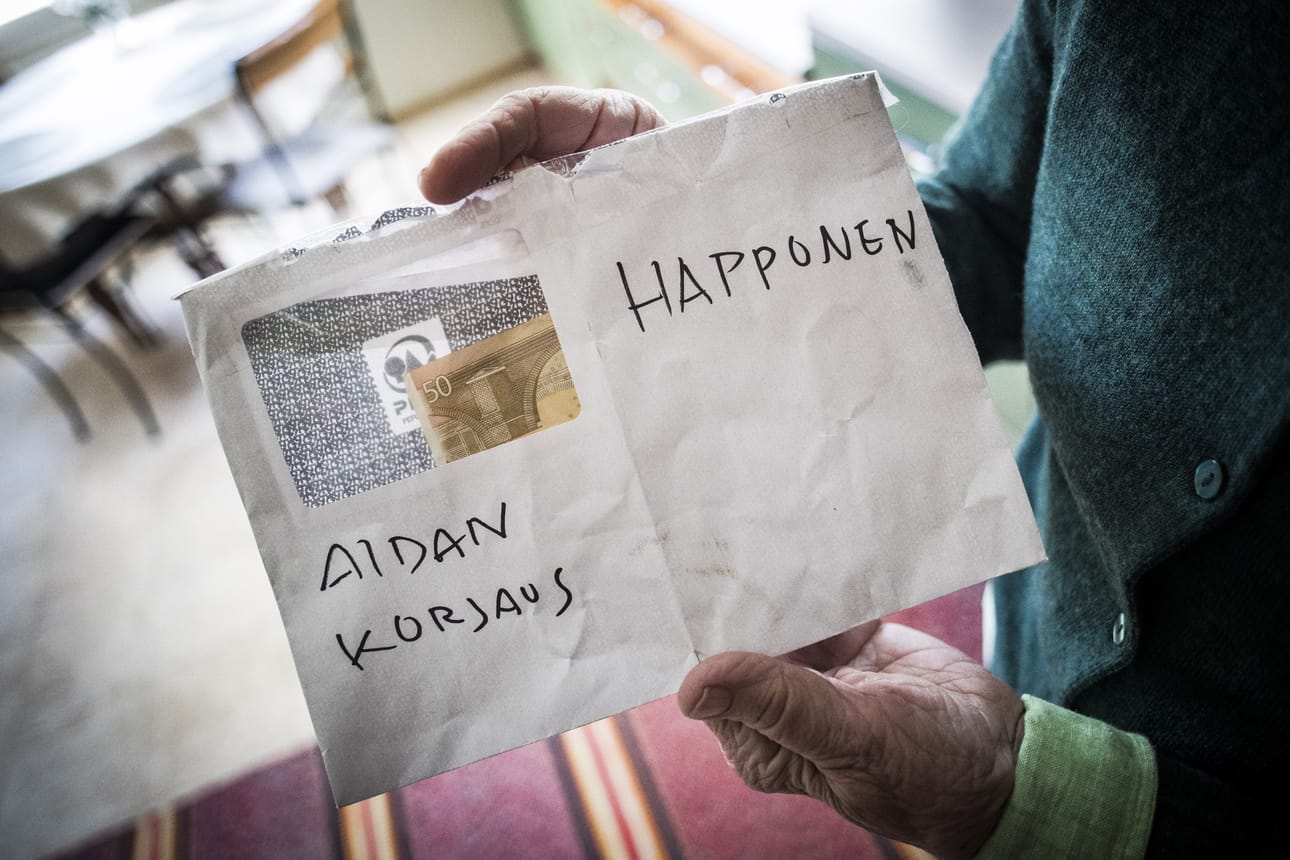 HAPPONEN
50
AIDAN
KORJAUS